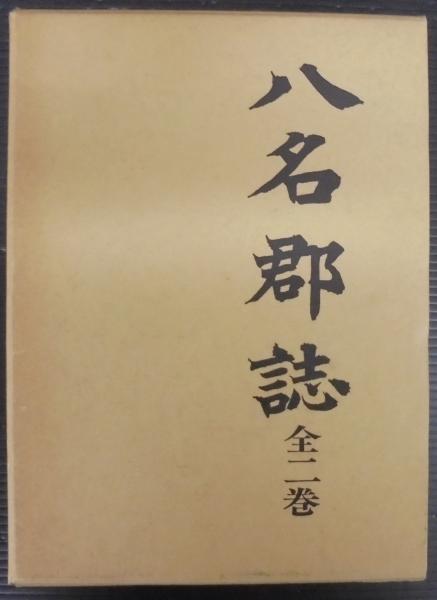 八名郡誌 全二巻